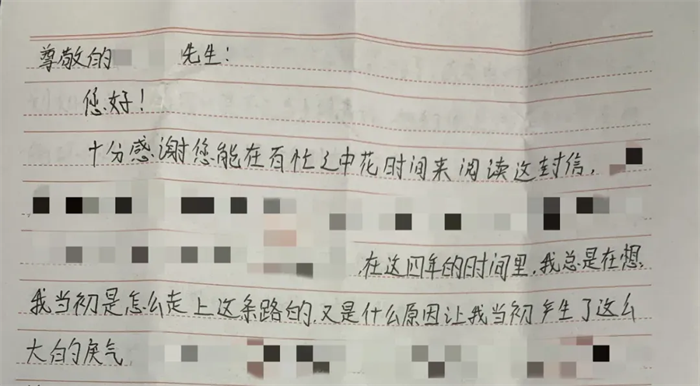 尊敬的 先生：
您好！
十分感谢您能在百忙之中花时间来阅读这封信，
在这四年的时间里，我总是在想，
我当初是怎么走上这条路的，又是什么原因让我当初产生了这么
大的戾气